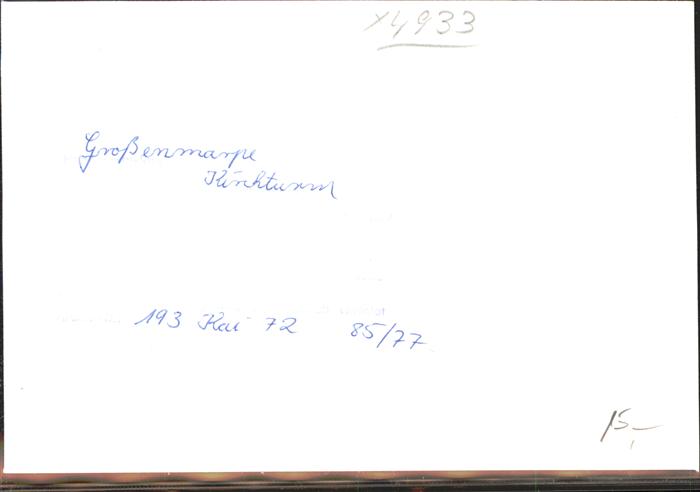 x4933
Großenmarpe
Kirchturm
193 Kai 72 85/77
15,-